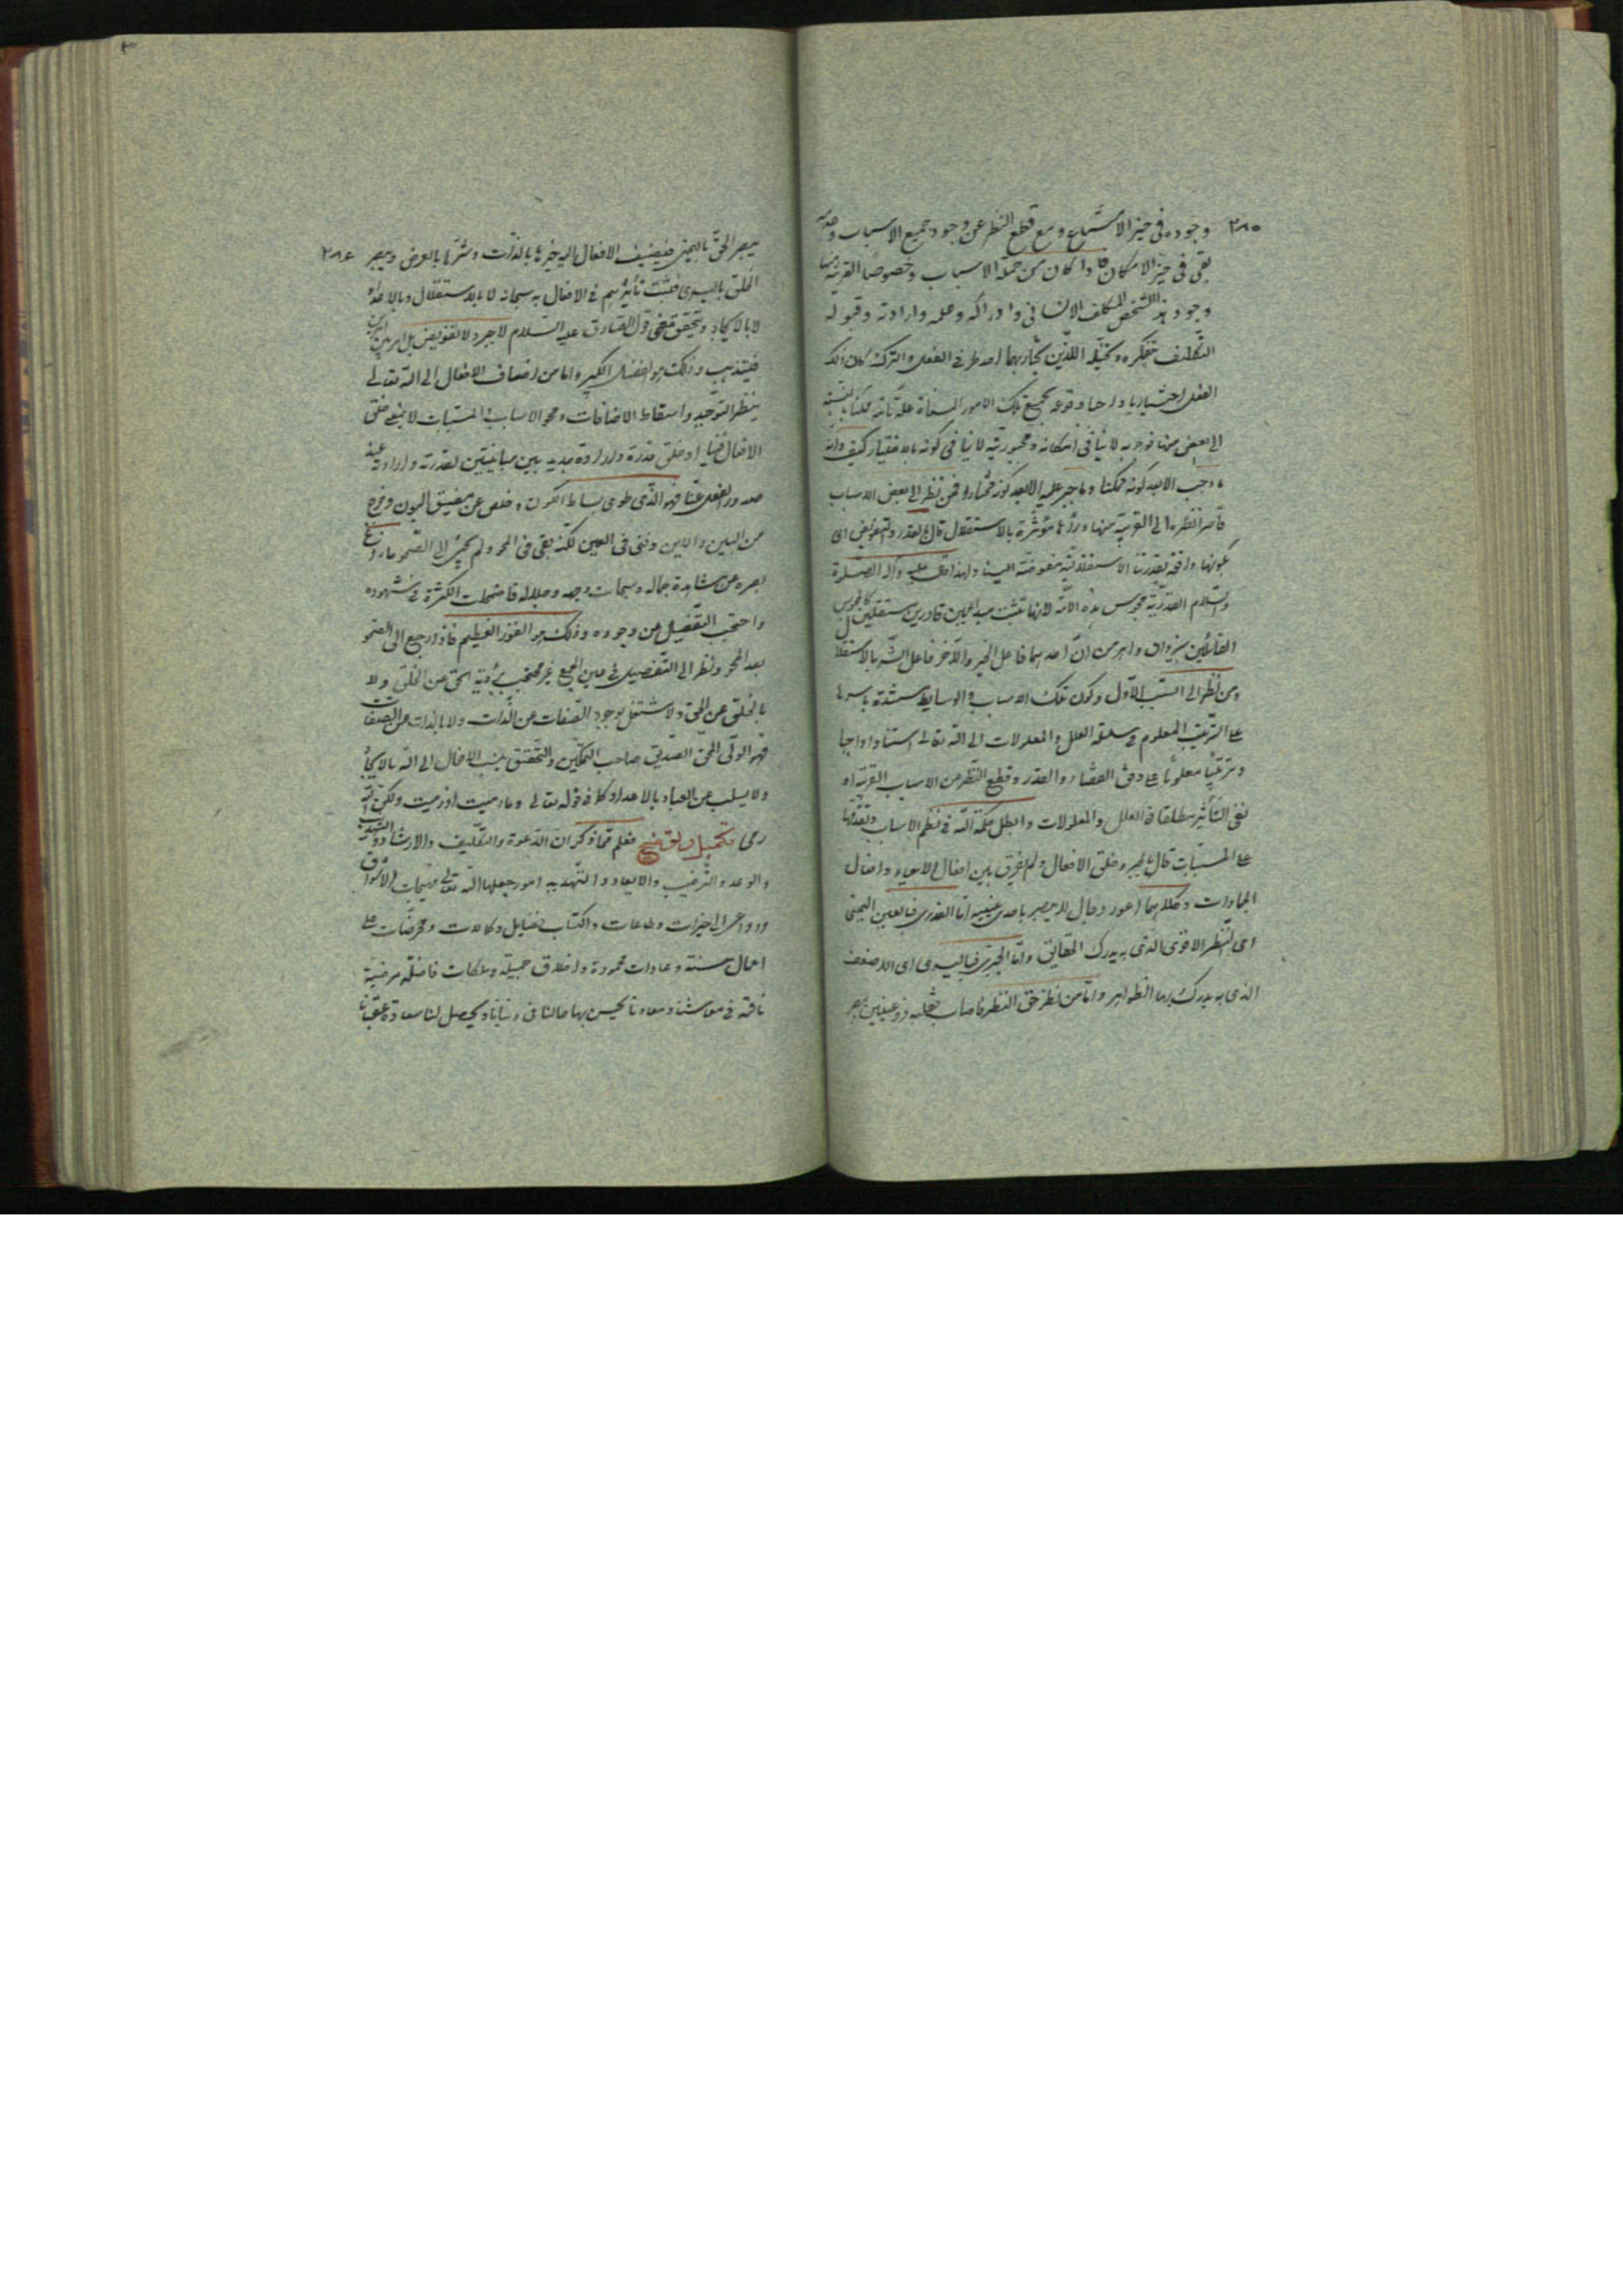 ٢٨٥
وجوده فى حيز الامتناع و مع قطع النظر عن وجود جميع الاسباب وعدمه
بقى فى حيز الامكان فاذا كان من جملة الاسباب وخصوصا القريبة منها
وجود هذا الشخص المكلف الانسانى وادراكه وعلمه وارادته وقبوله
التكليف بتفكره وتخيله اللذين يختار بهما احد طرفى الفعل والترك كان ذلك
الفعل اختياريا واجبا وقوعه بجميع تلك الامور المسماة علة تامة ممكنا بالنسبة
الى البعض منها فوجوبه لا ينافى امكانه ومجبوريته لا ينافى كونه بالاختيار كيف وانه
ما وجب الا بعد كونه ممكنا وما جبر عليه الا بعد كونه مختارا فمن نظر الى بعض الاسباب
قاصرا نظره الى القريبة منها ورآها مؤثرة بالاستقلال قال بالقدر والتفويض اى
بكونها واقعة بقدرتنا الاستقلالية مفوضة الينا ولهذا قال عليه وآله الصلوة
والسلام القدرية مجوس هذه الامة لانها تثبت مبدأين قادرين مستقلين كالمجوس
القائلين بيزدان واهرمن ان احدهما فاعل الخير والآخر فاعل الشر بالاستقلال
ومن نظر الى السبب الاول وكون تلك الاسباب والوسايط مستندة باسرها
على الترتيب المعلوم فى سلسلة العلل والمعلولات الى الله تعالى استنادا واجبا
وترتيبا معلوما على وفق القضاء والقدر وقطع النظر عن الاسباب القريبة او
نفى التأثير مطلقا فى العلل والمعلولات وابطل حكمة الله فى نظم الاسباب وتقدمها
على المسببات قال بالجبر وخلق الافعال ولم يفرق بين افعال الاحياء وافعال
الجمادات وكلاهما اعور دجال لا يبصر باحدى عينيه اما القدرى فبالعين اليمنى
اى النظر الاقوى الذى به يدرك الحقائق واما الجبرى فباليسرى اى الاضعف
الذى به يدرك بها الظواهر واما من نظر حق النظر فاصاب فقلبه ذو عينين يبصر
٢٨٦
يبصر الحق باليمنى فيضيف الافعال اليه خيرها بالذات وشرها بالعرض ويبصر
الخلق باليسرى فيثبت تأثيرهم فى الافعال به سبحانه لا بالاستقلال وبالاعداد
لا بالايجاد ويتحقق معنى قول الصادق عليه السلام لا جبر ولا تفويض بل امر بين امرين
فيتذهب وذلك هو الفضل الكبير واما من اضاف الافعال الى الله تعالى
بنظر التوحيد واسقاط الاضافات ومحو الاسباب والمسببات لا بمعنى خلق
الافعال فينا او خلق قدرة وارادة جديدتين مباينتين لقدرته وارادته عند
صدور الفعل عنا فهو الذى طوى بساط الكون وخلص عن مضيق البون وخرج
من البين والاين وفنى فى العين لكنه بقى فى المحو ولم يجئ الى الصحو ما زاغ
بصره عن مشاهدة جماله وسبحات وجهه وجلاله فاضمحلت الكثرة فى شهوده
واحتجب التفصيل عن وجوده وذلك هو الفوز العظيم فاذا رجع الى الصحو
بعد المحو ونظر الى التفصيل فى عين الجمع غير محتجب برؤية الحق عن الخلق ولا
بالخلق عن الحق ولا مشتغل بوجود الصفات عن الذات ولا بالذات عن الصفات
فهو الولى المحق الصديق صاحب التمكين والتحقيق ينسب الافعال الى الله بالايجاد
ولا يسلب عن العباد بالاعداد كما فى قوله تعالى وما رميت اذ رميت ولكن الله
رمى تكميل وتوضيح فعلم مما ذكر ان الدعوة والتكليف والارشاد والتهذيب
والوعد والترغيب والايعاد والتهديد امور جعلها الله تعالى مهيجات الاشواق
ودواعى الى خيرات وطاعات واكتساب فضايل وكمالات ومحرضات على
اعمال حسنة وعادات محمودة واخلاق جميلة وملكات فاضلة مرضية
نافعة فى معاشنا ومعادنا يحسن بها حالنا فى دنيانا ويحصل لنا سعادة عقبانا